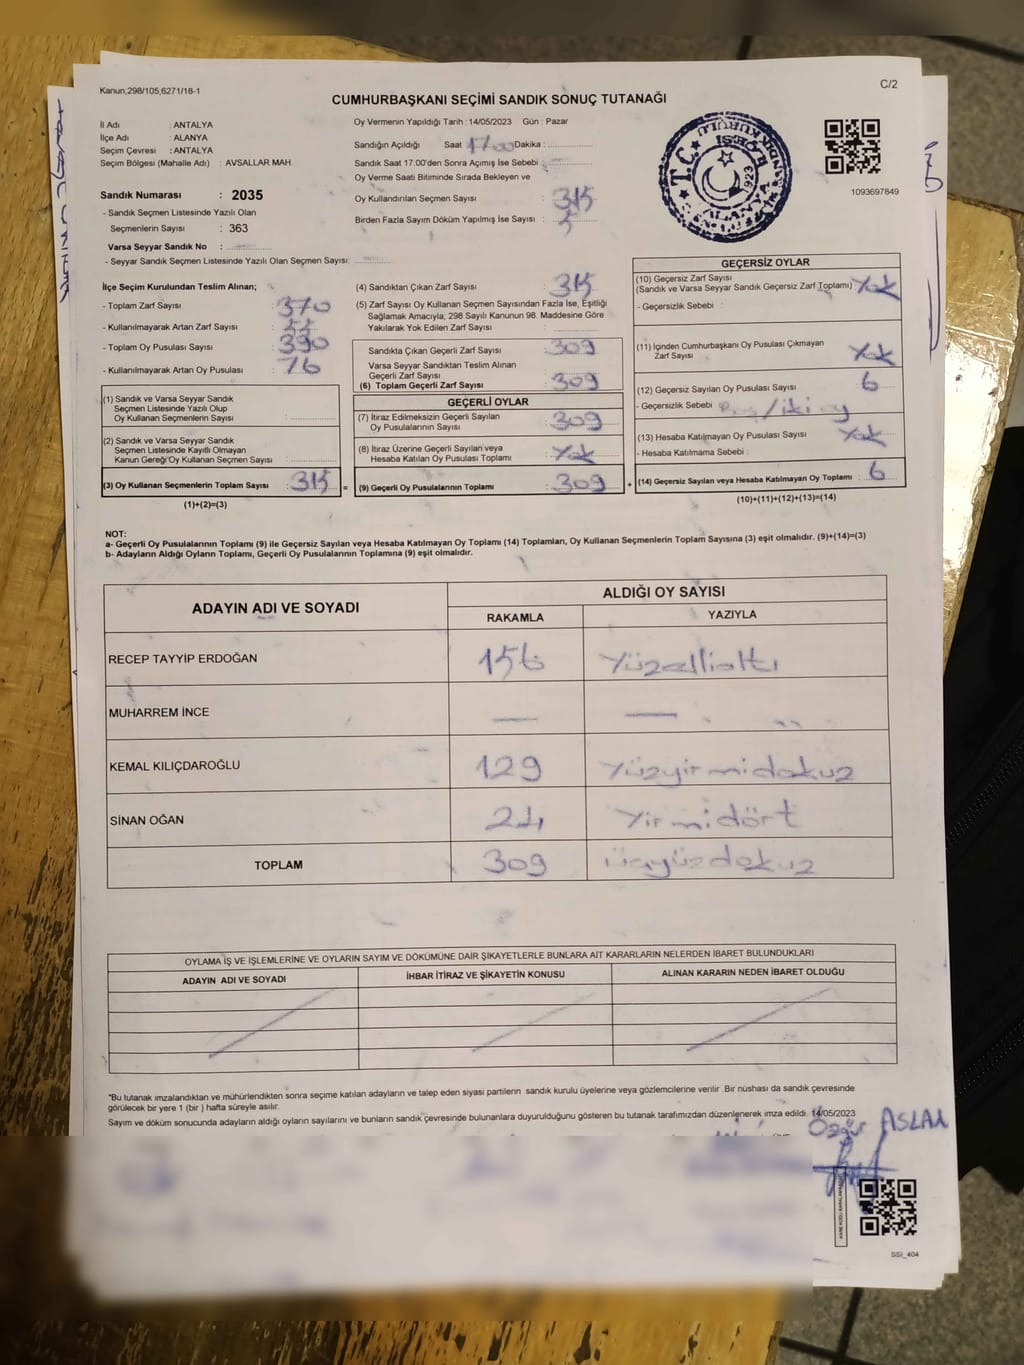 Kanun;298/105;6271/18-1
C/2
CUMHURBAŞKANI SEÇİMİ SANDIK SONUÇ TUTANAĞI
İl Adı : ANTALYA
İlçe Adı : ALANYA
Seçim Çevresi : ANTALYA
Seçim Bölgesi (Mahalle Adı) : AVSALLAR MAH.
Sandık Numarası : 2035
- Sandık Seçmen Listesinde Yazılı Olan
Seçmenlerin Sayısı : 363
Varsa Seyyar Sandık No :
- Seyyar Sandık Seçmen Listesinde Yazılı Olan Seçmen Sayısı:
Oy Vermenin Yapıldığı Tarih : 14/05/2023 Gün : Pazar
Sandığın Açıldığı Saat 17:00 Dakika :
Sandık Saat 17:00'den Sonra Açımış İse Sebebi :
Oy Verme Saati Bitiminde Sırada Bekleyen ve
Oy Kullandırılan Seçmen Sayısı : 315
Birden Fazla Sayım Döküm Yapılmış İse Sayısı :
1093697849
İlçe Seçim Kurulundan Teslim Alınan;
- Toplam Zarf Sayısı : 370
- Kullanılmayarak Artan Zarf Sayısı : 55
- Toplam Oy Pusulası Sayısı : 390
- Kullanılmayarak Artan Oy Pusulası : 76
(1) Sandık ve Varsa Seyyar Sandık
Seçmen Listesinde Yazılı Olup
Oy Kullanan Seçmenlerin Sayısı :
(2) Sandık ve Varsa Seyyar Sandık
Seçmen Listesinde Kayıtlı Olmayan
Kanun Gereği Oy Kullanan Seçmen Sayısı :
(3) Oy Kullanan Seçmenlerin Toplam Sayısı : 315 =
(1)+(2)=(3)
(4) Sandıktan Çıkan Zarf Sayısı : 315
(5) Zarf Sayısı Oy Kullanan Seçmen Sayısından Fazla İse, Eşitliği
Sağlamak Amacıyla; 298 Sayılı Kanunun 98. Maddesine Göre
Yakılarak Yok Edilen Zarf Sayısı :
Sandıkta Çıkan Geçerli Zarf Sayısı : 309
Varsa Seyyar Sandıktan Teslim Alınan
Geçerli Zarf Sayısı :
(6) Toplam Geçerli Zarf Sayısı : 309
GEÇERLİ OYLAR
(7) İtiraz Edilmeksizin Geçerli Sayılan
Oy Pusulalarının Sayısı : 309
(8) İtiraz Üzerine Geçerli Sayılan veya
Hesaba Katılan Oy Pusulası Toplamı : Yok
(9) Geçerli Oy Pusulalarının Toplamı : 309 +
GEÇERSİZ OYLAR
(10) Geçersiz Zarf Sayısı
(Sandık ve Varsa Seyyar Sandık Geçersiz Zarf Toplamı) : Yok
- Geçersizlik Sebebi :
(11) İçinden Cumhurbaşkanı Oy Pusulası Çıkmayan
Zarf Sayısı : Yok
(12) Geçersiz Sayılan Oy Pusulası Sayısı : 6
- Geçersizlik Sebebi : /iki oy
(13) Hesaba Katılmayan Oy Pusulası Sayısı : Yok
- Hesaba Katılmama Sebebi :
(14) Geçersiz Sayılan veya Hesaba Katılmayan Oy Toplamı : 6
(10)+(11)+(12)+(13)=(14)
NOT:
a- Geçerli Oy Pusulalarının Toplamı (9) ile Geçersiz Sayılan veya Hesaba Katılmayan Oy Toplamı (14) Toplamları, Oy Kullanan Seçmenlerin Toplam Sayısına (3) eşit olmalıdır. (9)+(14)=(3)
b- Adayların Aldığı Oyların Toplamı, Geçerli Oy Pusulalarının Toplamına (9) eşit olmalıdır.
ADAYIN ADI VE SOYADI
ALDIĞI OY SAYISI
RAKAMLA YAZIYLA
RECEP TAYYİP ERDOĞAN 156 Yüzellialtı
MUHARREM İNCE — —
KEMAL KILIÇDAROĞLU 129 Yüzyirmidokuz
SİNAN OĞAN 24 Yirmidört
TOPLAM 309 üçyüzdokuz
OYLAMA İŞ VE İŞLEMLERİNE VE OYLARIN SAYIM VE DÖKÜMÜNE DAİR ŞİKAYETLERLE BUNLARA AİT KARARLARIN NELERDEN İBARET BULUNDUKLARI
ADAYIN ADI VE SOYADI İHBAR İTİRAZ VE ŞİKAYETİN KONUSU ALINAN KARARIN NEDEN İBARET OLDUĞU
*Bu tutanak imzalandıktan ve mühürlendikten sonra seçime katılan adayların ve talep eden siyasi partilerin sandık kurulu üyelerine veya gözlemcilerine verilir. Bir nüshası da sandık çevresinde
görülecek bir yere 1 (bir) hafta süreyle asılır.
Sayım ve döküm sonucunda adayların aldığı oyların sayılarını ve bunların sandık çevresinde bulunanlara duyurulduğunu gösteren bu tutanak tarafımızdan düzenlenerek imza edildi. 14/05/2023
Özgür ASLAN
SSI_404